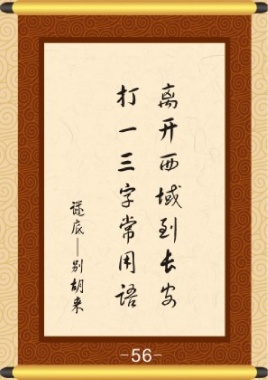 离开西域到长安
打一三字常用语
谜底——别胡来
-56-